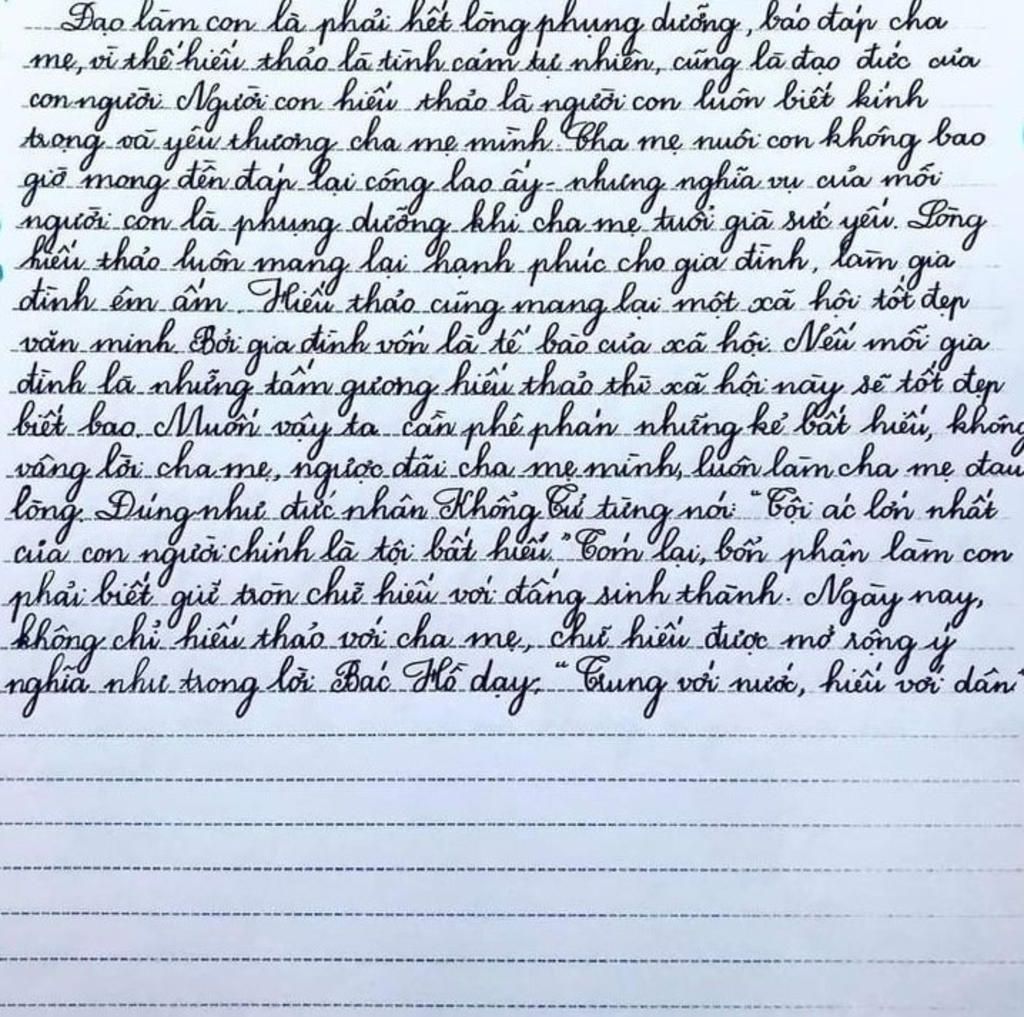 Đạo làm con là phải hết lòng phụng dưỡng, báo đáp cha
mẹ, vì thế hiếu thảo là tình cảm tự nhiên, cũng là đạo đức của
con người. Người con hiếu thảo là người con luôn biết kính
trọng và yêu thương cha mẹ mình. Cha mẹ nuôi con không bao
giờ mong đền đáp lại công lao ấy - nhưng nghĩa vụ của mỗi
người con là phụng dưỡng khi cha mẹ tuổi già sức yếu. Lòng
hiếu thảo luôn mang lại hạnh phúc cho gia đình, làm gia
đình êm ấm. Hiếu thảo cũng mang lại một xã hội tốt đẹp
văn minh. Bởi gia đình vốn là tế bào của xã hội. Nếu mỗi gia
đình là những tấm gương hiếu thảo thì xã hội này sẽ tốt đẹp
biết bao. Muốn vậy ta cần phê phán những kẻ bất hiếu, không
vâng lời cha mẹ, ngược đãi cha mẹ mình, luôn làm cha mẹ đau
lòng. Đúng như đức nhân Khổng Tử từng nói: "Tội ác lớn nhất
của con người chính là tội bất hiếu." Tóm lại, bổn phận làm con
phải biết giữ tròn chữ hiếu với đấng sinh thành. Ngày nay,
không chỉ hiếu thảo với cha mẹ, chữ hiếu được mở rộng ý
nghĩa như trong lời Bác Hồ dạy: "Trung với nước, hiếu với dân"